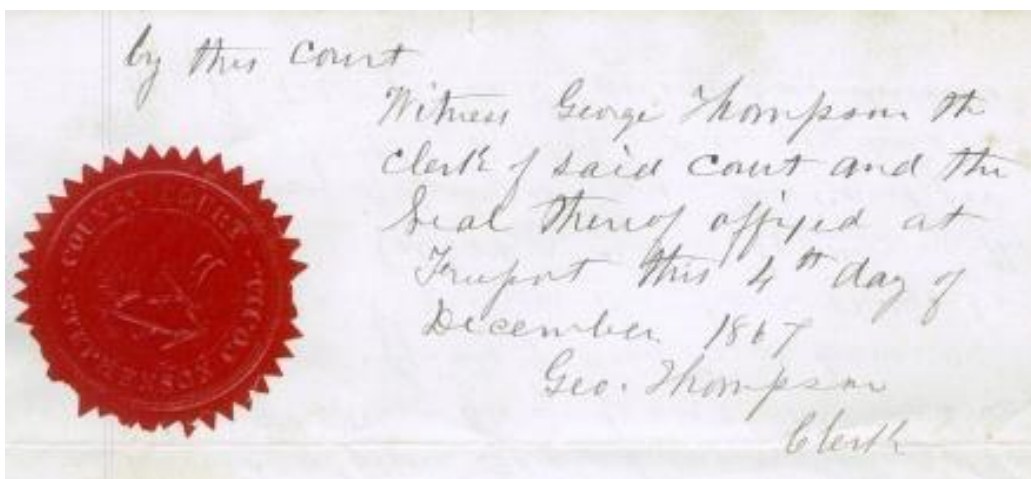 by this Court
Witness George Thompson the
Clerk of said Court and the
Seal thereof affixed at
Freeport this 4th day of
December 1867
Geo. Thompson
Clerk
COUNTY COURT
STEPHENSON CO. ILL.